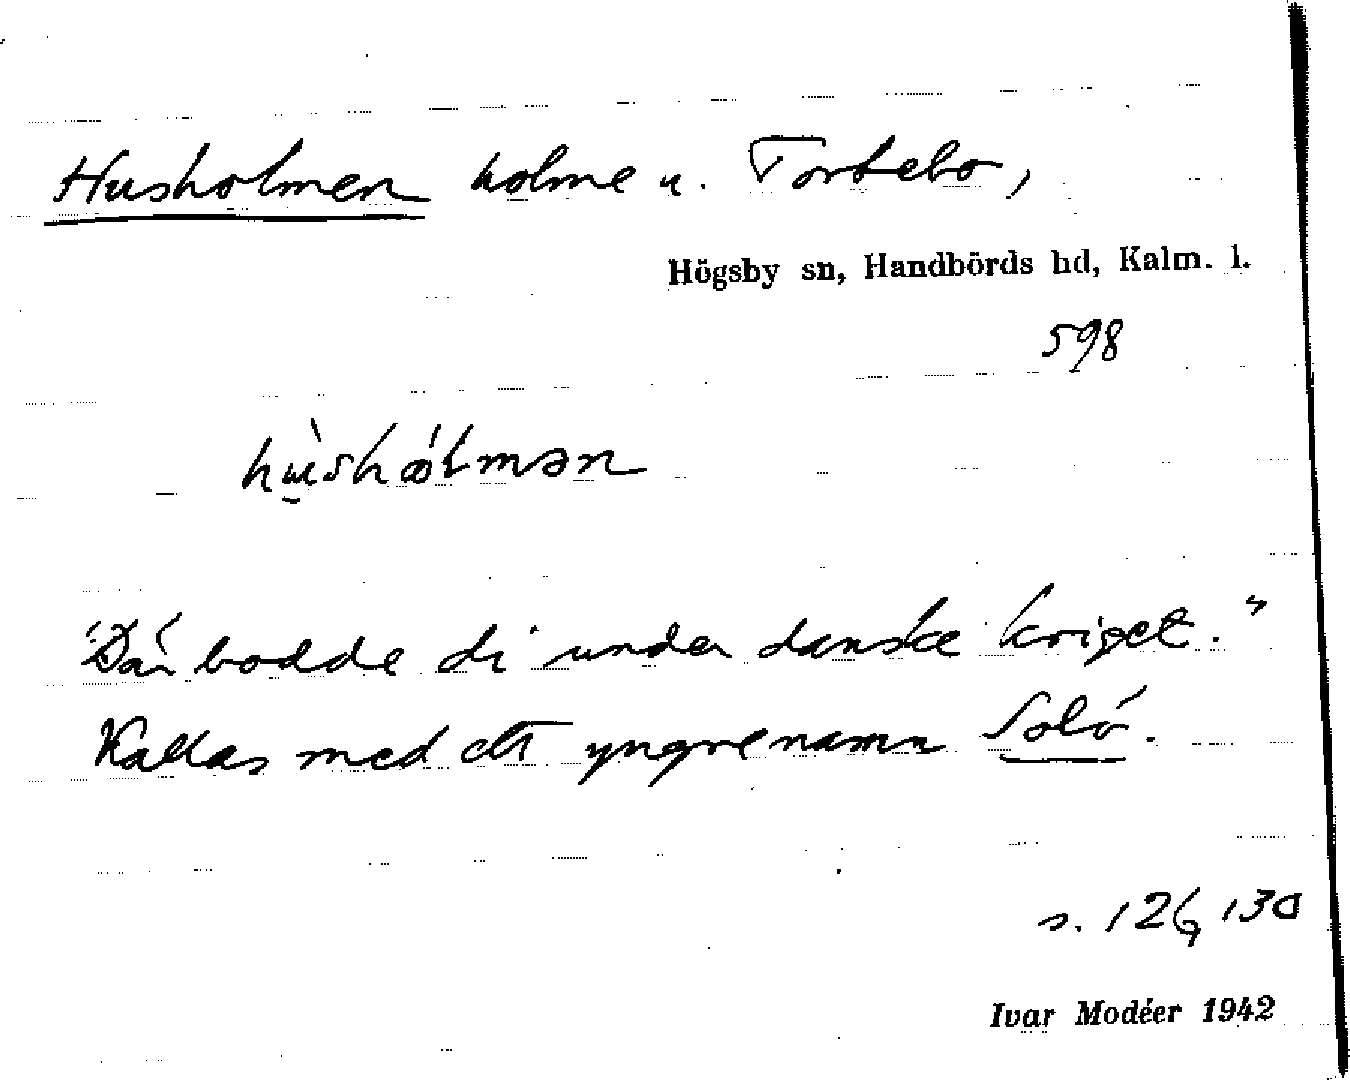 Husholmen holme u. Tortebo,
Högsby sn, Handbörds hd, Kalm. l.
598
hùshólmən
"Där bodde di under danske kriget."
Kallas med ett yngre namn Solö.
s. 126, 130
Ivar Modéer 1942